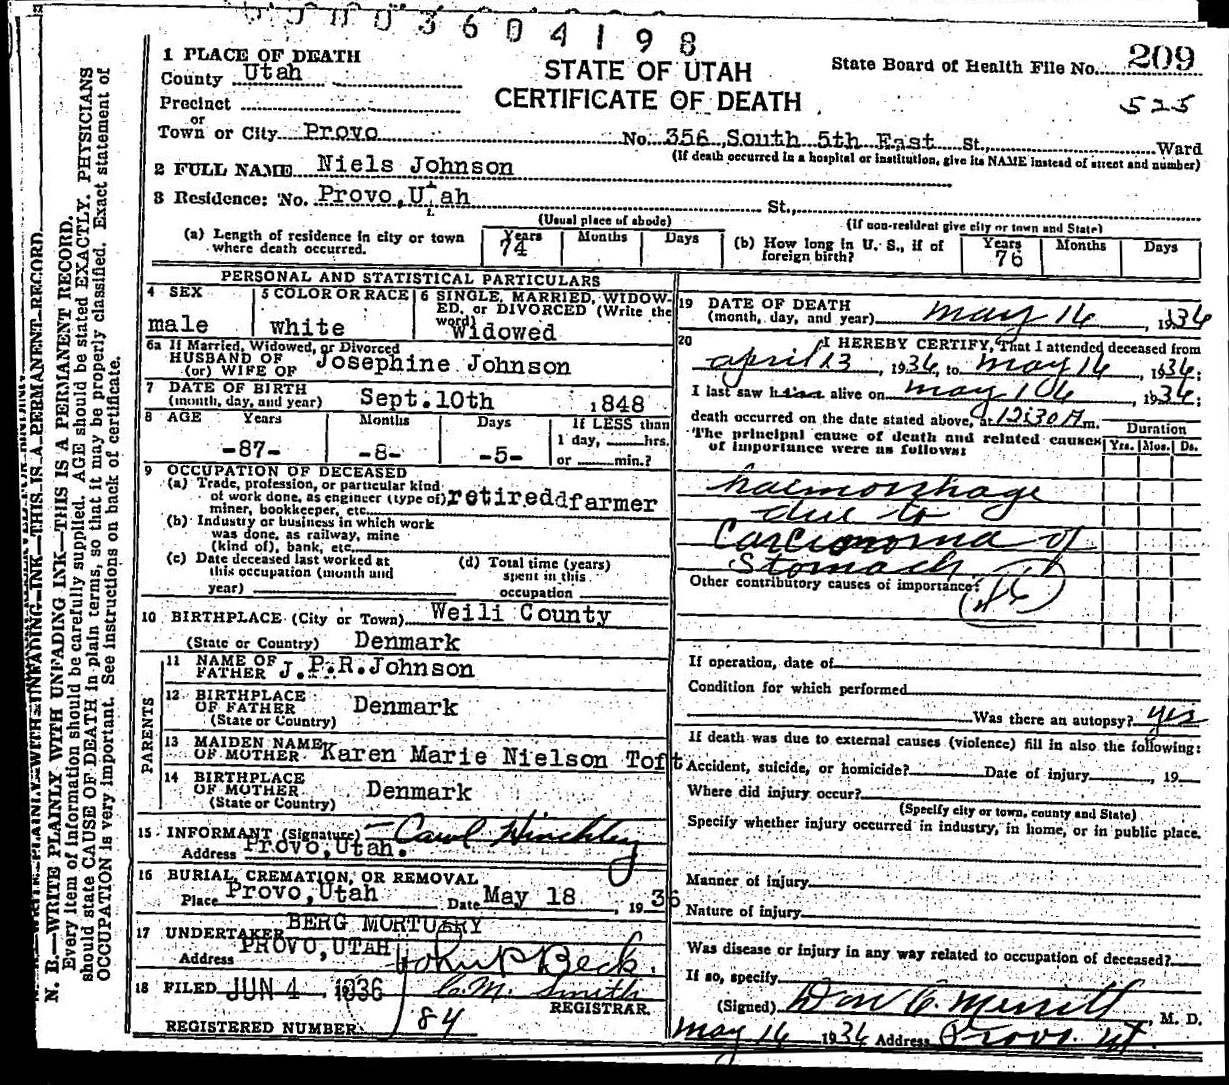 03604198
1 PLACE OF DEATH
County Utah
STATE OF UTAH
CERTIFICATE OF DEATH
State Board of Health File No. 209
525
Precinct
or
Town or City Provo No. 356 South 5th East St., Ward
(If death occurred in a hospital or institution, give its NAME instead of street and number)
2 FULL NAME Niels Johnson
3 Residence: No. Provo, Utah St.,
(Usual place of abode) (If non-resident give city or town and State)
(a) Length of residence in city or town where death occurred. Years 74 Months Days
(b) How long in U. S., if of foreign birth? Years 76 Months Days
PERSONAL AND STATISTICAL PARTICULARS
4 SEX male
5 COLOR OR RACE white
6 SINGLE, MARRIED, WIDOWED, or DIVORCED (Write the word) Widowed
6a If Married, Widowed, or Divorced
HUSBAND OF
(or) WIFE OF Josephine Johnson
7 DATE OF BIRTH
(month, day, and year) Sept. 10th 1848
8 AGE Years -87- Months -8- Days -5- If LESS than
1 day, hrs.
or min.?
9 OCCUPATION OF DECEASED
(a) Trade, profession, or particular kind
of work done, as engineer (type of)
miner, bookkeeper, etc. retiredd farmer
(b) Industry or business in which work
was done, as railway, mine
(kind of), bank, etc.
(c) Date deceased last worked at
this occupation (month and
year)
(d) Total time (years)
spent in this
occupation
10 BIRTHPLACE (City or Town) Weili County
(State or Country) Denmark
PARENTS
11 NAME OF
FATHER J.P.R.Johnson
12 BIRTHPLACE
OF FATHER Denmark
(State or Country)
13 MAIDEN NAME
OF MOTHER Karen Marie Nielson Toft
14 BIRTHPLACE
OF MOTHER Denmark
(State or Country)
15 INFORMANT (Signature) Carol Hinckley
Address Provo, Utah.
16 BURIAL, CREMATION, OR REMOVAL
Place Provo, Utah Date May 18, 1936
17 UNDERTAKER BERG MORTUARY
Address PROVO, UTAH John P Beck.
18 FILED JUN 4 1936 C. M. Smith
REGISTRAR.
REGISTERED NUMBER 184
19 DATE OF DEATH
(month, day, and year) May 16, 1936
20 I HEREBY CERTIFY, That I attended deceased from
April 23, 1936, to May 16, 1936;
I last saw him alive on May 16, 1936;
death occurred on the date stated above, at 12:30 A m.
The principal cause of death and related causes
of importance were as follows:
Duration
Yrs. Mos. Ds.
haemorrhage
due to
Carcinoma of
Stomach
Other contributory causes of importance:
If operation, date of
Condition for which performed
Was there an autopsy? yes
If death was due to external causes (violence) fill in also the following:
Accident, suicide, or homicide? Date of injury , 19
Where did injury occur?
(Specify city or town, county and State)
Specify whether injury occurred in industry, in home, or in public place.
Manner of injury
Nature of injury
Was disease or injury in any way related to occupation of deceased?
If so, specify
(Signed) Don C. Merrill, M. D.
May 16 1936 Address Provo. Ut.
N. B.—WRITE PLAINLY WITH UNFADING INK—THIS IS A PERMANENT RECORD.
Every item of information should be carefully supplied. AGE should be stated EXACTLY. PHYSICIANS
should state CAUSE OF DEATH in plain terms, so that it may be properly classified. Exact statement of
OCCUPATION is very important. See instructions on back of certificate.